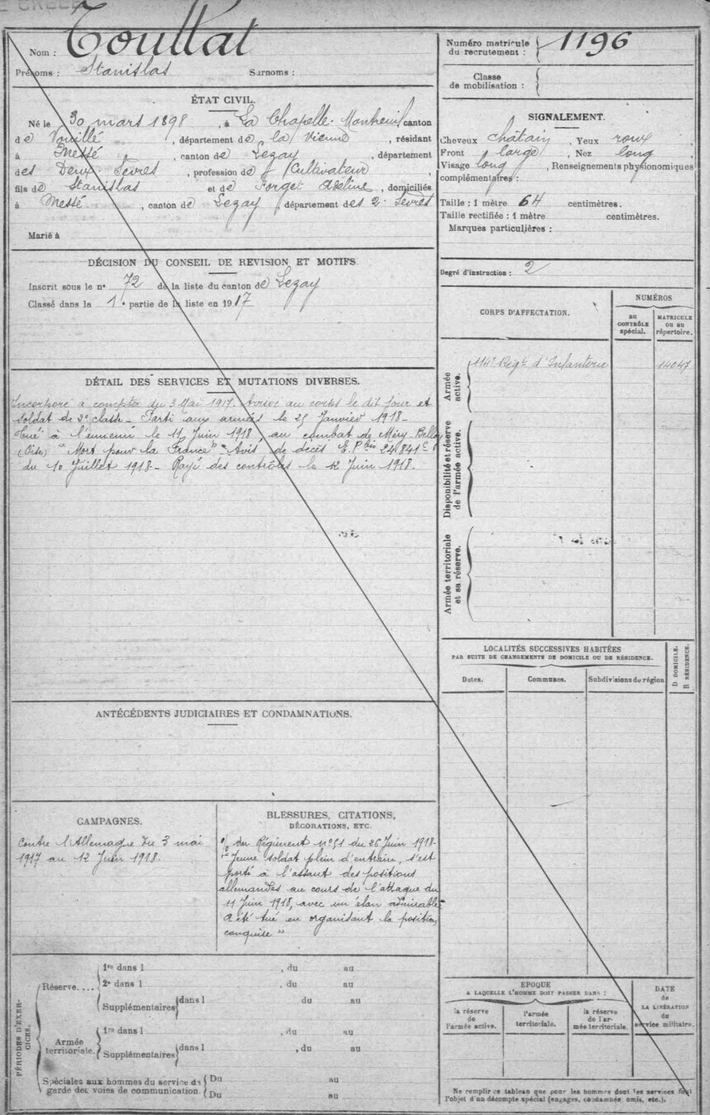 Nom : Toullat
Prénoms : Stanislas Surnoms :
ÉTAT CIVIL.
Né le 30 mars 1898, à La Chapelle-Montreuil canton
de Vouillé, département de la Vienne, résidant
à Messé, canton de Lezay, département
des Deux Sèvres, profession de Cultivateur
fils de Stanislas et de Forget Adeline, domiciliés
à Messé, canton de Lezay département des 2 Sèvres
Marié à
DÉCISION DU CONSEIL DE REVISION ET MOTIFS.
Inscrit sous le n° 72 de la liste du canton de Lezay
Classé dans la 1e partie de la liste en 1917
DÉTAIL DES SERVICES ET MUTATIONS DIVERSES.
Incorporé à compter du 3 Mai 1917. Arrivé au corps le dit jour et
soldat de 2e classe. Parti aux armées le 25 Janvier 1918.
Tué à l'ennemi le 11 Juin 1918, au combat de Méry-Belloy
(Oise) "Mort pour la France" Avis de décès
du 10 Juillet 1918. Rayé des contrôles le 12 Juin 1918.
ANTÉCÉDENTS JUDICIAIRES ET CONDAMNATIONS.
CAMPAGNES.
Contre l'Allemagne du 3 mai
1917 au 12 Juin 1918.
BLESSURES, CITATIONS,
DÉCORATIONS, ETC.
du Régiment n° 51 du 26 Juin 1918
"Jeune soldat plein d'entrain, s'est
porté à l'assaut des positions
allemandes au cours de l'attaque du
11 Juin 1918, avec un élan admirable
A été tué en organisant la position
conquise"
PÉRIODES D'EXERCICES.
Réserve....
1re dans l , du au
2e dans l , du au
Supplémentaires dans l du au
Armée territoriale.
1re dans l , du au
Supplémentaires dans l , du au
Spéciales aux hommes du service de garde des voies de communication.
Du au
Du au
Numéro matricule du recrutement : 1196
Classe de mobilisation :
SIGNALEMENT.
Cheveux châtain, Yeux roux
Front large, Nez long
Visage long, Renseignements physionomiques
complémentaires :
Taille : 1 mètre 64 centimètres.
Taille rectifiée : 1 mètre centimètres.
Marques particulières :
Degré d'instruction : 2
CORPS D'AFFECTATION.
NUMÉROS
AU CONTRÔLE spécial.
MATRICULE OU AU répertoire.
Armée active.
114e Régt d'Infanterie 14047
Disponibilité et réserve de l'armée active.
Armée territoriale et sa réserve.
LOCALITÉS SUCCESSIVES HABITÉES
PAR SUITE DE CHANGEMENTS DE DOMICILE OU DE RÉSIDENCE.
Dates. Communes. Subdivisions de région
D. DOMICILE.
R. RÉSIDENCE.
EPOQUE
A LAQUELLE L'HOMME DOIT PASSER DANS :
la réserve de l'armée active.
l'armée territoriale.
la réserve de l'armée territoriale.
DATE
de
LA LIBÉRATION
du
service militaire.
Ne remplir ce tableau que pour les hommes dont les services font
l'objet d'un décompte spécial (engagés, condamnés, omis, etc.).